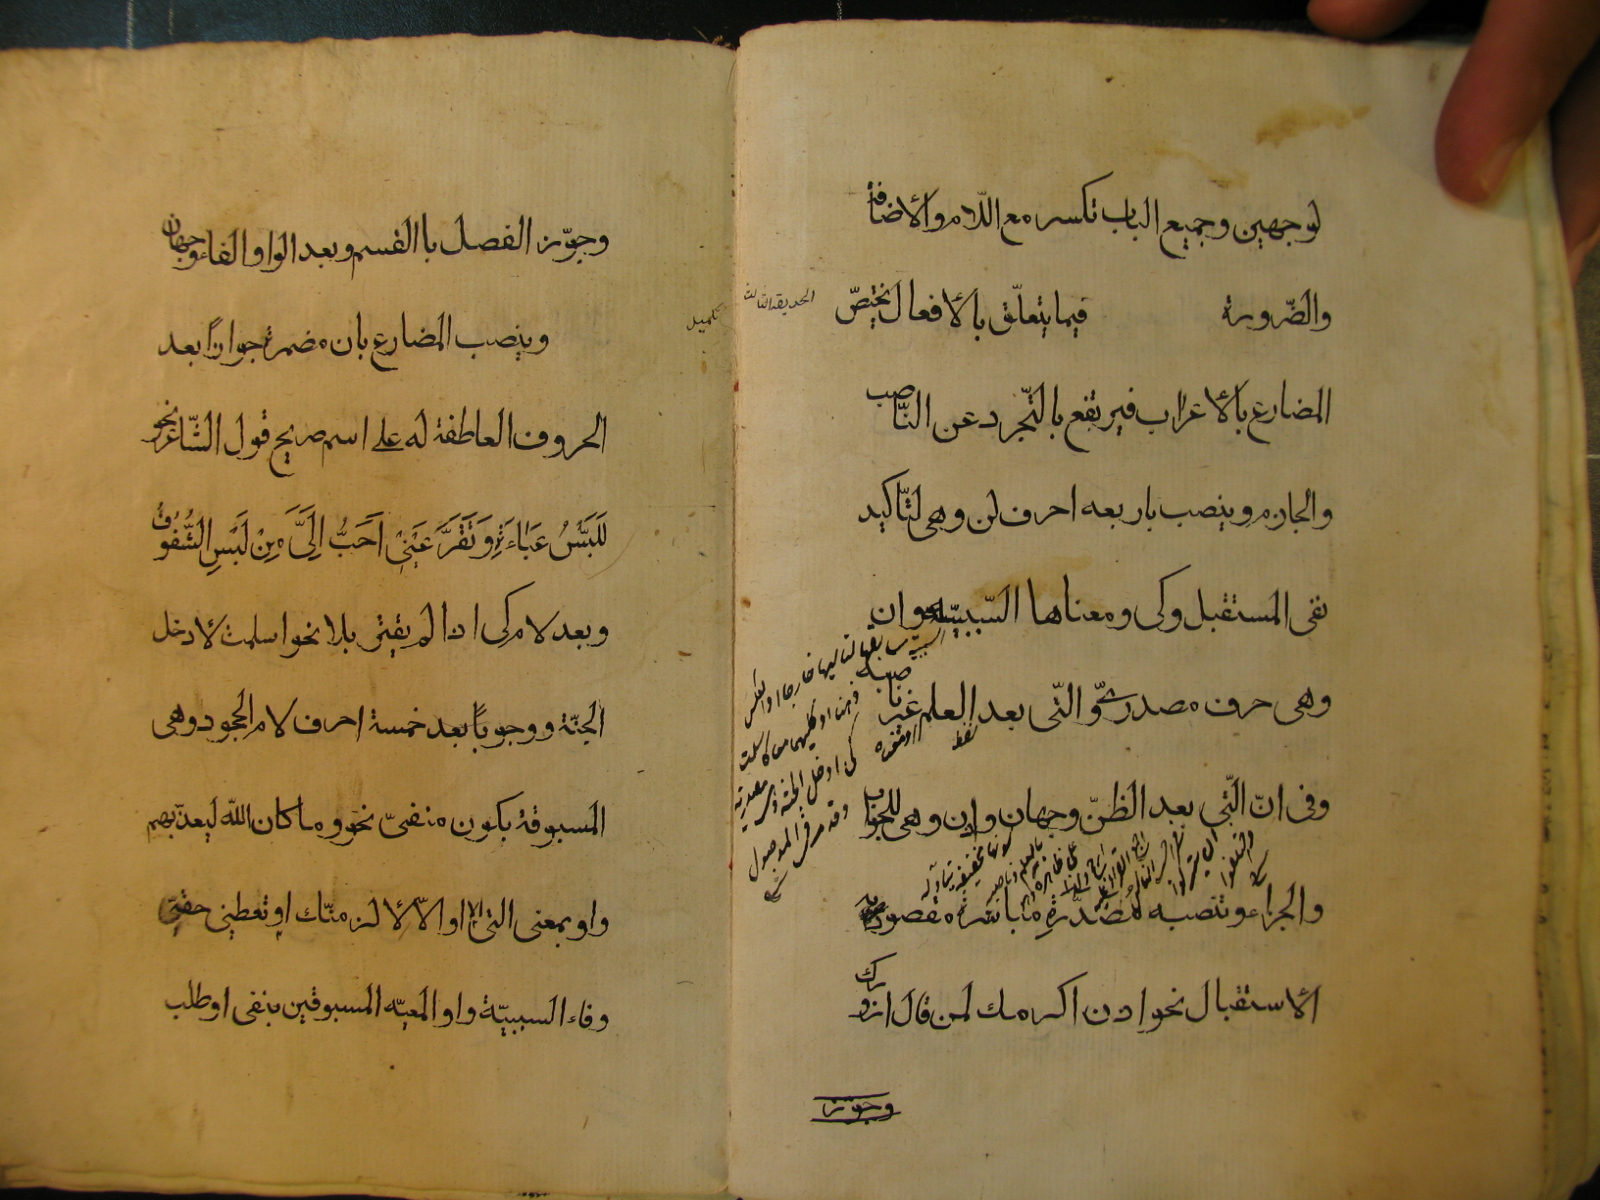 لوجهين وجميع الباب تكسر مع اللّام والأضافة
والضّرورة فيما يتعلّق بالأفعال يختصّ
الحديقة الثالث
المضارع بالأعراب فيرتفع بالتّجرد عن النّاصب
والجازم وينصب باربعه احرف لن وهى لتّاكيد
نفى المستقبل وكى ومعناها السّببيّه وان
وهى حرف مصدرىّ والتّى بعد العلم غير ناصبه
وفى انّ التّى بعد الظنّ وجهان واذن وهى للجواب
والجزاء وتنصبه مصدّرة مباشرة مقصودا به
الأستقبال نحو اذن اكرمك لمن قال ازورك
وجوّز
وجوّز الفصل باالقسم وبعد الواو والفاء وجهان
تكميل
وينصب المضارع بان مضمرة جوازاً بعد
الحروف العاطفة له على اسم صريح نحو قول الشّاعر
للبس عباءة وتقرّ عينى احبّ الىّ من لبس الشّفوف
وبعد لام كى اذا لم يقترن بلا نحو اسلمت لأدخل
الجنّة ووجوباً بعد خمسة احرف لام الجحود وهى
المسبوقة بكون منفىّ نحو وما كان اللّه ليعذّبهم
واو بمعنى الى او الّا لألزمنّك او تعطينى حقّى
وفاء السببيّة واو المعيّه المسبوقين بنفى او طلب